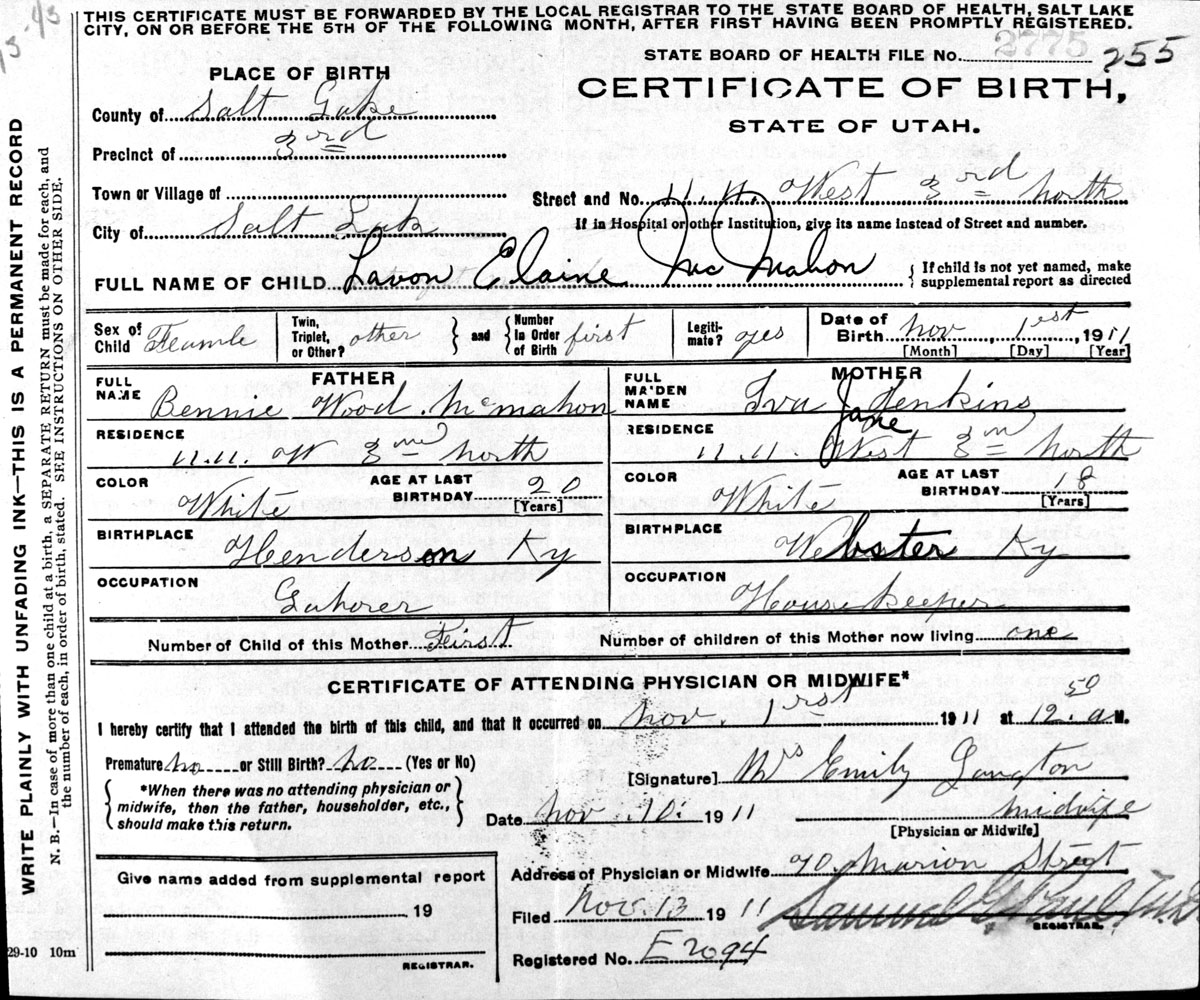 THIS CERTIFICATE MUST BE FORWARDED BY THE LOCAL REGISTRAR TO THE STATE BOARD OF HEALTH, SALT LAKE
CITY, ON OR BEFORE THE 5TH OF THE FOLLOWING MONTH, AFTER FIRST HAVING BEEN PROMPTLY REGISTERED.
STATE BOARD OF HEALTH FILE No. 2775 255
PLACE OF BIRTH
CERTIFICATE OF BIRTH,
STATE OF UTAH.
County of Salt Lake
Precinct of 3rd
Town or Village of
Street and No. West 3rd North
City of Salt Lake
If in Hospital or other Institution, give its name instead of Street and number.
FULL NAME OF CHILD Lavon Elaine McMahon { If child is not yet named, make supplemental report as directed
Sex of Child Feamle Twin, Triplet, or Other? other } and { Number in Order of Birth first Legiti-mate? yes Date of Birth Nov 1est 1911
[Month] [Day] [Year]
FATHER MOTHER
FULL NAME Bennie Wood Mcmahon FULL MAIDEN NAME Iva Jane Jenkins
RESIDENCE W North RESIDENCE West North
COLOR White AGE AT LAST BIRTHDAY 20 [Years] COLOR White AGE AT LAST BIRTHDAY 18 [Years]
BIRTHPLACE Henderson Ky BIRTHPLACE Webster Ky
OCCUPATION Laborer OCCUPATION House keeper
Number of Child of this Mother First Number of children of this Mother now living one
CERTIFICATE OF ATTENDING PHYSICIAN OR MIDWIFE*
I hereby certify that I attended the birth of this child, and that it occurred on Nov. 1rst 1911 at 12.50 a M.
Premature? no or Still Birth? no (Yes or No)
[Signature] Mrs Emily Langton
{ *When there was no attending physician or
midwife, then the father, householder, etc.,
should make this return. }
Date Nov. 10. 1911 midwife
[Physician or Midwife]
Give name added from supplemental report
Address of Physician or Midwife 70. Marion Street
19
Filed Nov. 13 1911 Samuel G. Paul M.D.
REGISTRAR.
REGISTRAR.
Registered No. E2094
29-10 10m
WRITE PLAINLY WITH UNFADING INK—THIS IS A PERMANENT RECORD
N. B.—In case of more than one child at a birth, a SEPARATE RETURN must be made for each, and
the number of each, in order of birth, stated. SEE INSTRUCTIONS ON OTHER SIDE.